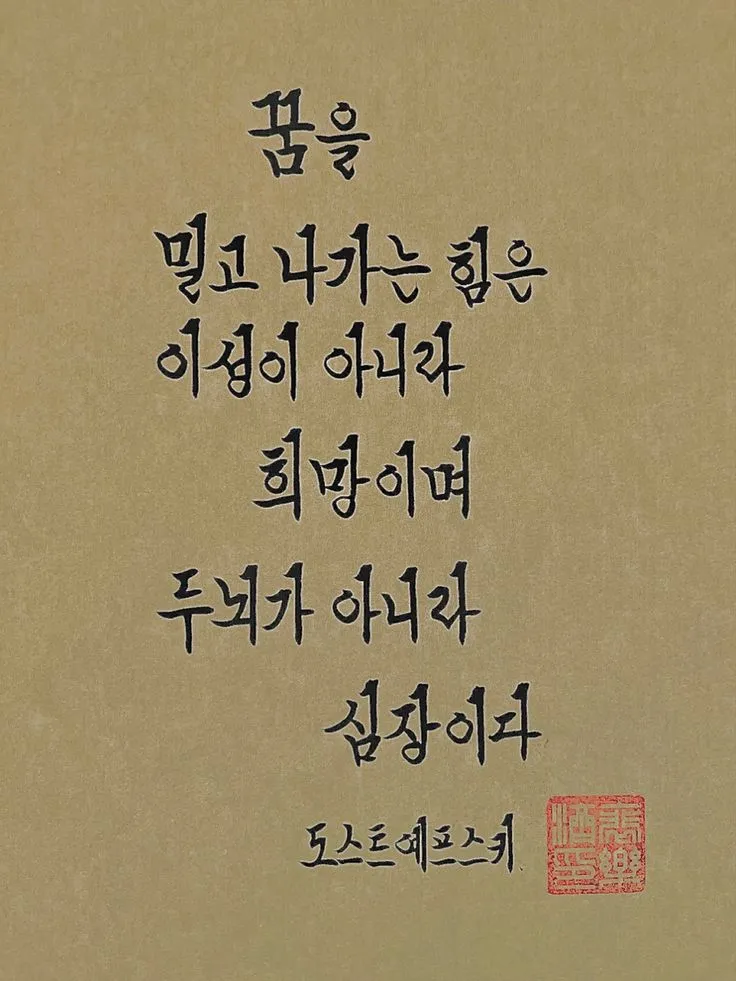 꿈을
밀고 나가는 힘은
이성이 아니라
희망이며
두뇌가 아니라
심장이다
도스트예프스키